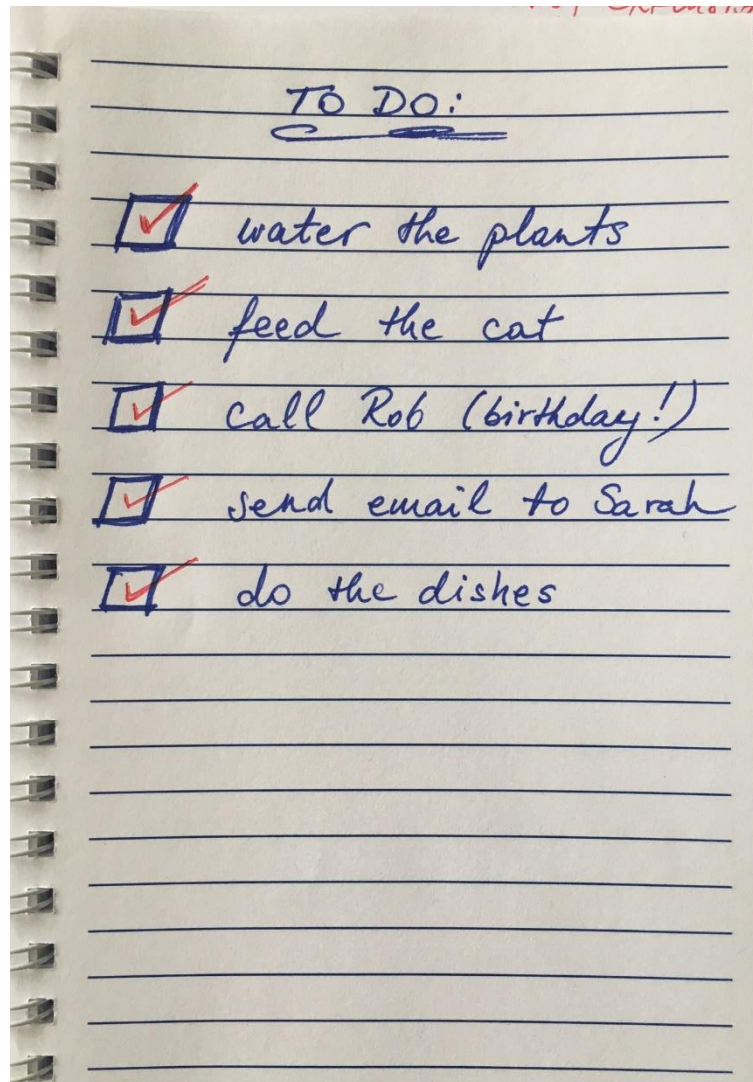 TO DO:
water the plants
feed the cat
call Rob (birthday!)
send email to Sarah
do the dishes